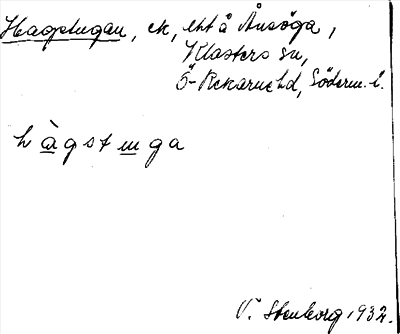 Hagstugan, ek, lht å Ånsöga,
Klosters sn,
Ö-Rekarne hd, Söderm. l.
h à g s t u g a
V. Stenborg 1932.